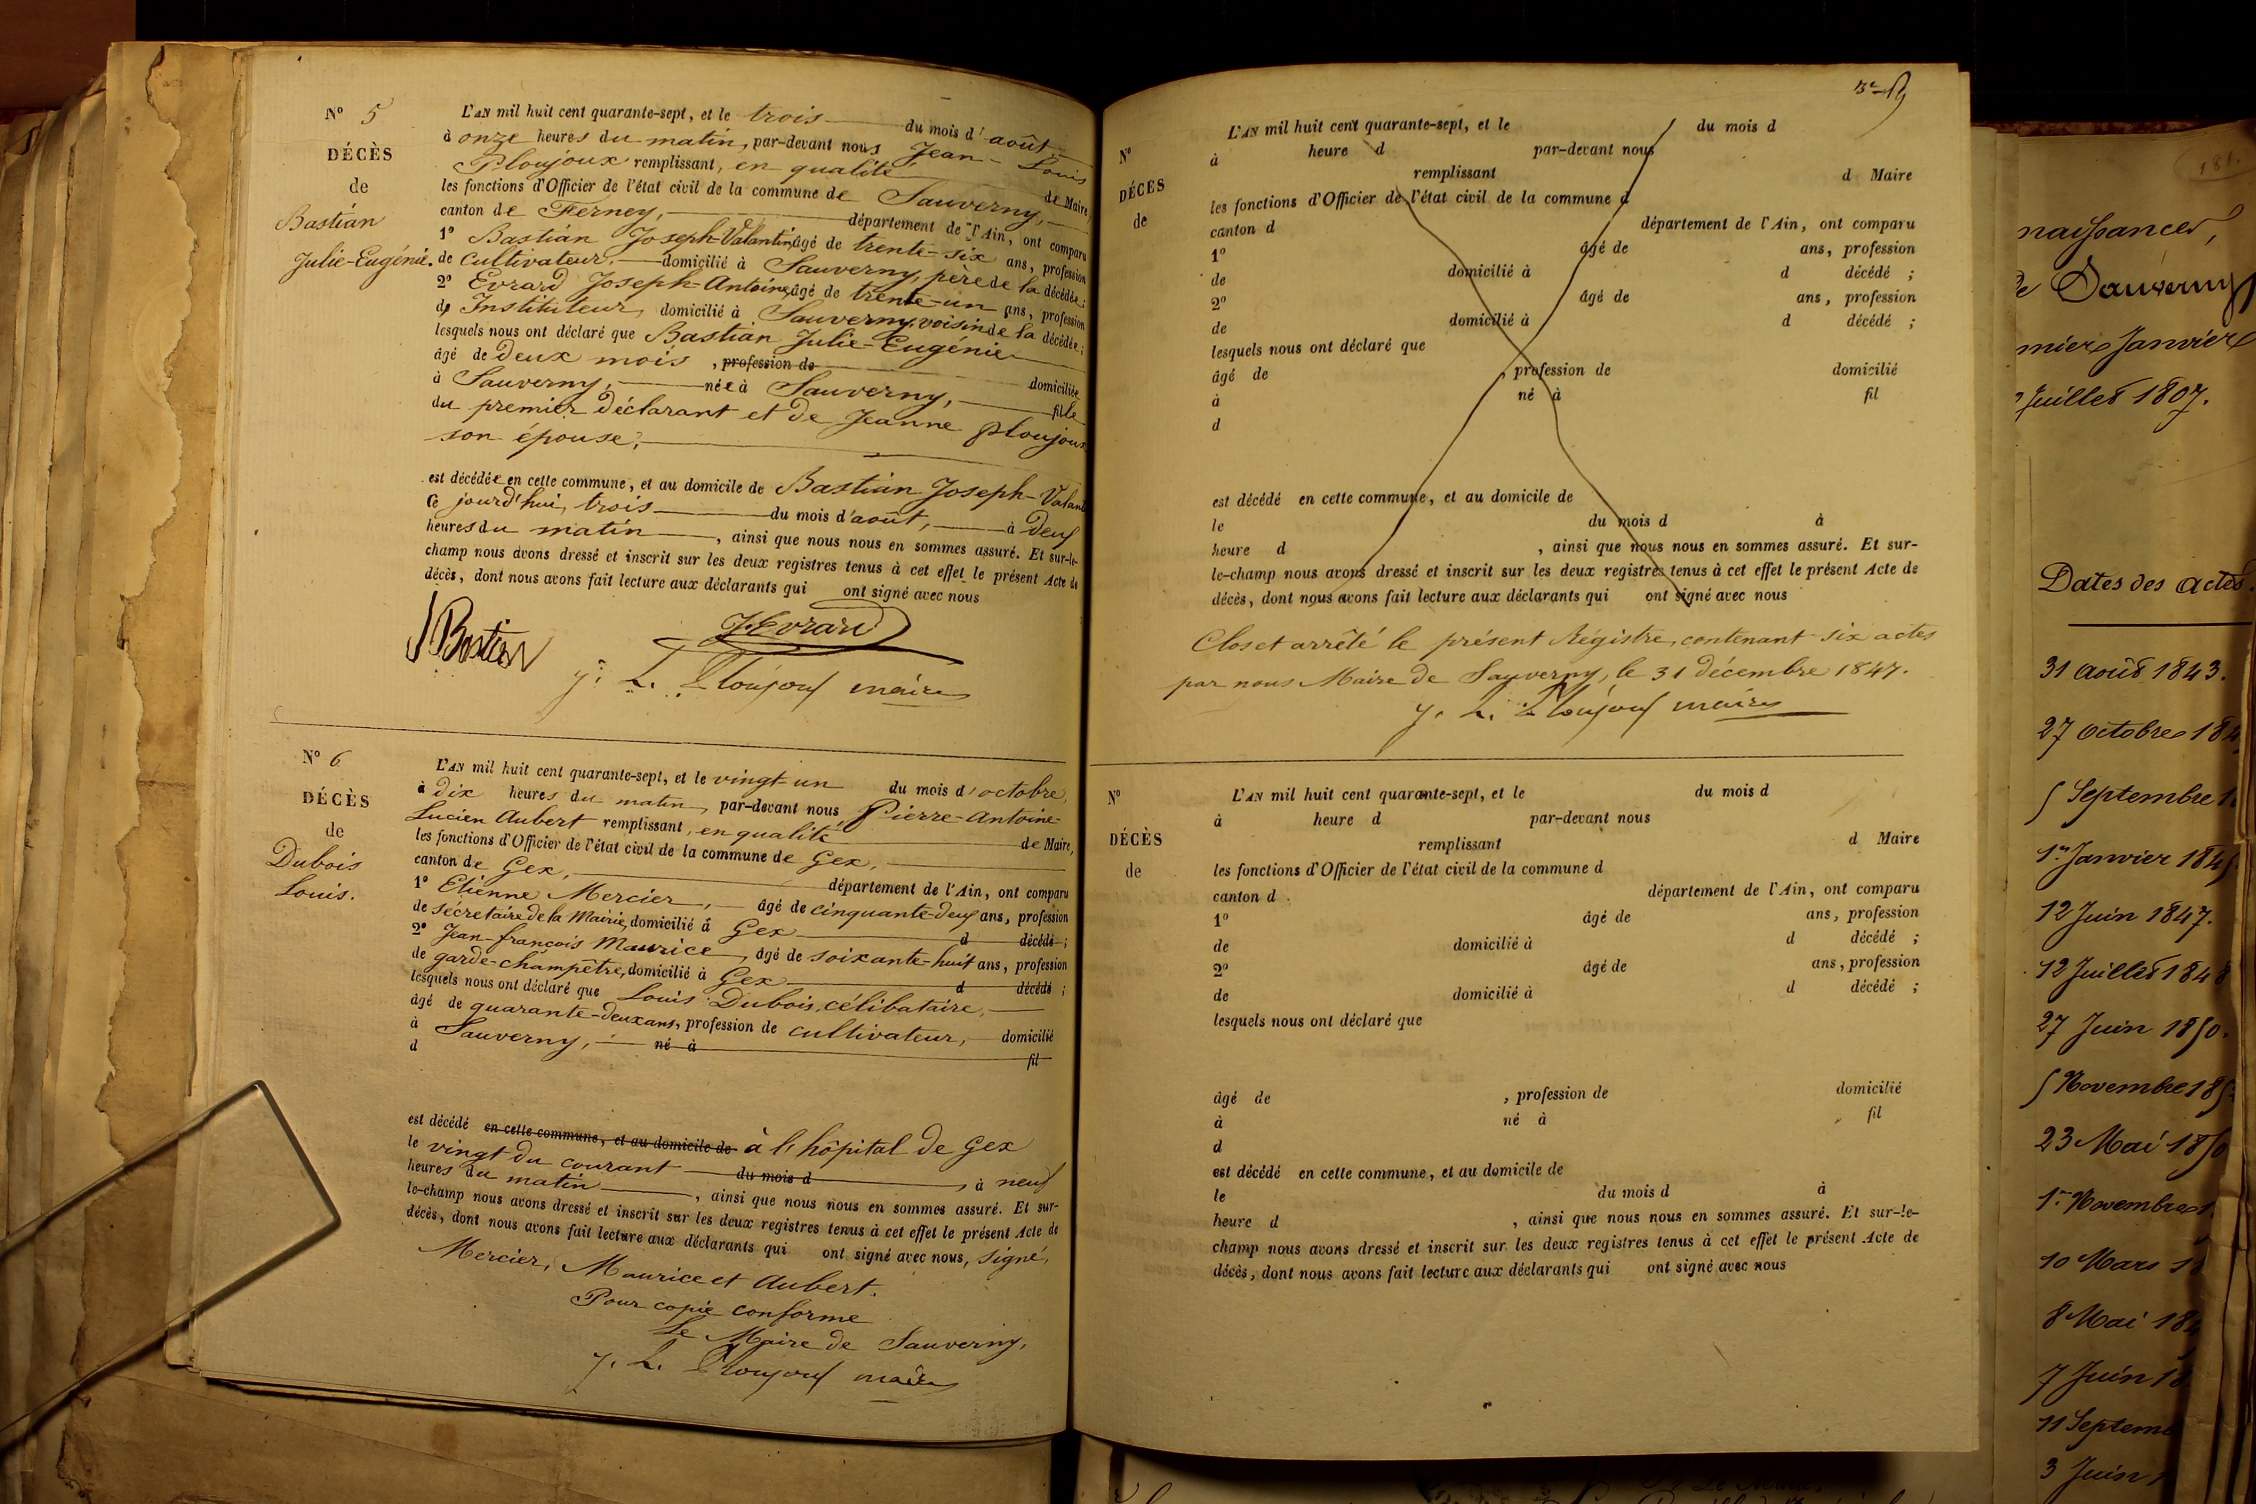 N° 5
DÉCÈS
de
Bastian
Julie-Eugénie.
L'AN mil huit cent quarante-sept, et le trois du mois d'août,
à onze heures du matin, par-devant nous Jean-Louis
Ploujoux remplissant, en qualité de Maire,
les fonctions d'Officier de l'état civil de la commune de Sauverny,
canton de Ferney, département de l'Ain, ont comparu
1° Bastian Joseph-Valantin, âgé de trente-six ans, profession
de cultivateur, domicilié à Sauverny, père de la décédée;
2° Evrard Joseph-Antoine, âgé de trente-un ans, profession
d'Instituteur, domicilié à Sauverny, voisin de la décédée;
lesquels nous ont déclaré que Bastian Julie-Eugénie
âgé de deux mois, profession de domiciliée
à Sauverny, née à Sauverny, fille
du premier déclarant et de Jeanne Ploujoux
son épouse,
est décédée en cette commune, et au domicile de Bastian Joseph-Valant
Ce jourd'hui, trois du mois d'août, à deux
heures du matin, ainsi que nous nous en sommes assuré. Et sur-le-
champ nous avons dressé et inscrit sur les deux registres tenus à cet effet le présent Acte de
décès, dont nous avons fait lecture aux déclarants qui ont signé avec nous
JBastian JEvrard
J. L. Ploujoux maire
N° 6
DÉCÈS
de
Dubois
Louis.
L'AN mil huit cent quarante-sept, et le vingt-un du mois d'octobre,
à dix heures du matin, par-devant nous Pierre-Antoine-
Lucien Aubert remplissant, en qualité de Maire,
les fonctions d'Officier de l'état civil de la commune de Gex,
canton de Gex, département de l'Ain, ont comparu
1° Etienne Mercier, âgé de cinquante-deux ans, profession
de sécretaire de la Mairie, domicilié à Gex d décédé;
2° Jean-françois Maurice, âgé de soixante-huit ans, profession
de garde-champêtre, domicilié à Gex d décédé;
lesquels nous ont déclaré que Louis Dubois, célibataire,
âgé de quarante-deux ans, profession de cultivateur, domicilié
à Sauverny, né à fil
d
est décédé en cette commune, et au domicile de à l'hôpital de Gex
le vingt du courant du mois d, à neuf
heures du matin, ainsi que nous nous en sommes assuré. Et sur-
le-champ nous avons dressé et inscrit sur les deux registres tenus à cet effet le présent Acte de
décès, dont nous avons fait lecture aux déclarants qui ont signé avec nous, signé,
Mercier, Maurice et Aubert.
Pour copie conforme
Le Maire de Sauverny,
J. L. Ploujoux maire
N°
DÉCÈS
de
L'AN mil huit cent quarante-sept, et le du mois d
à heure d par-devant nous
remplissant d Maire
les fonctions d'Officier de l'état civil de la commune d
canton d département de l'Ain, ont comparu
1° âgé de ans, profession
de domicilié à d décédé;
2° âgé de ans, profession
de domicilié à d décédé;
lesquels nous ont déclaré que
âgé de, profession de domicilié
à né à fil
d
est décédé en cette commune, et au domicile de
le du mois d à
heure d, ainsi que nous nous en sommes assuré. Et sur-
le-champ nous avons dressé et inscrit sur les deux registres tenus à cet effet le présent Acte de
décès, dont nous avons fait lecture aux déclarants qui ont signé avec nous
Clos et arrêté le présent Régistre, contenant six actes
par nous Maire de Sauverny, le 31 décembre 1847.
J. L. Ploujoux maire
N°
DÉCÈS
de
L'AN mil huit cent quarante-sept, et le du mois d
à heure d par-devant nous
remplissant d Maire
les fonctions d'Officier de l'état civil de la commune d
canton d département de l'Ain, ont comparu
1° âgé de ans, profession
de domicilié à d décédé;
2° âgé de ans, profession
de domicilié à d décédé;
lesquels nous ont déclaré que
âgé de, profession de domicilié
à né à fil
d
est décédé en cette commune, et au domicile de
le du mois d à
heure d, ainsi que nous nous en sommes assuré. Et sur-le-
champ nous avons dressé et inscrit sur les deux registres tenus à cet effet le présent Acte de
décès, dont nous avons fait lecture aux déclarants qui ont signé avec nous
181.
naissances,
de Sauverny
mier Janvier
Juillet 1807.
Dates des actes.
31 août 1843.
27 octobre 184
5 Septembre 1
1er Janvier 184
12 Juin 1847.
12 Juillet 1848
27 Juin 1850.
5 Novembre 185
23 Mai 1850
1er Novembre 1
10 Mars 1
8 Mai 184
7 Juin 18
11 Septem
3 Juin